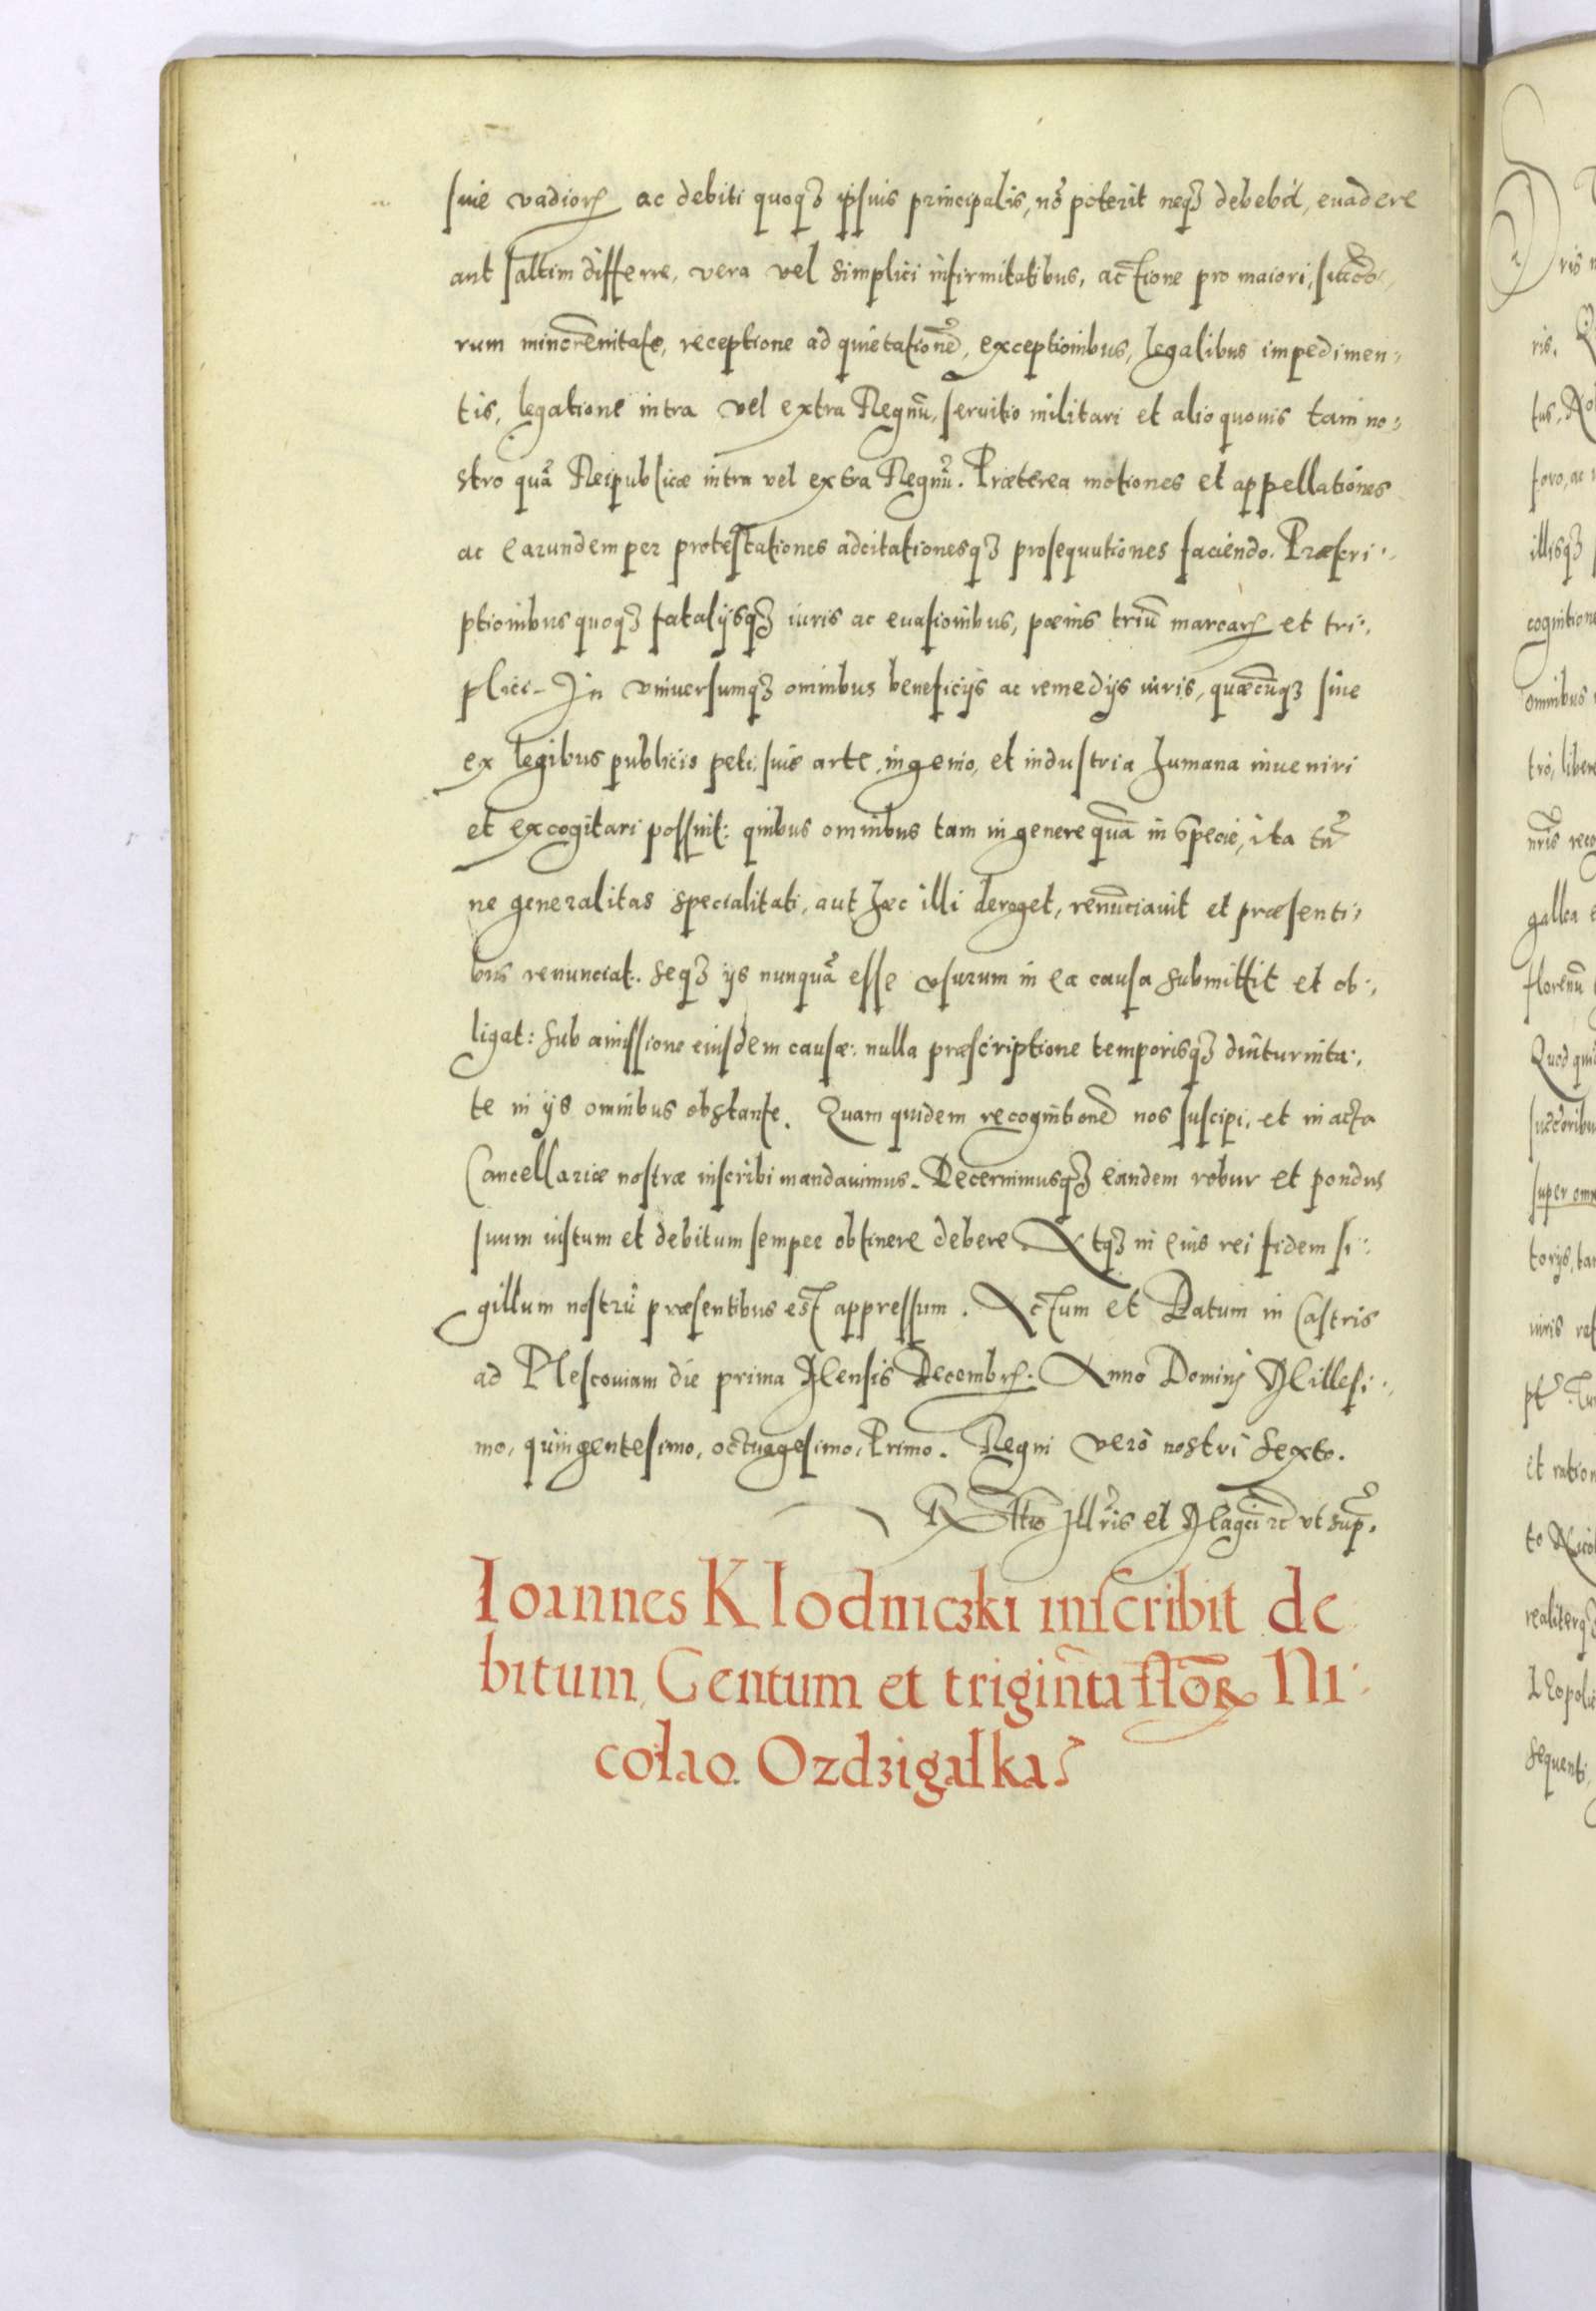 siue vadiorꝝ ac debiti quoqꝫ ipsius principalis, nõ poterit neqꝫ debebit, euadere
aut saltim differre, vera vel simplici infirmitatibus, actione pro maiori, succo
rum minorẽnitate, receptione ad quietationẽ, exceptionibus, legalibus impedimen:
tis, legatione intra vel extra Regnũ, seruitio militari et alio quouis tam no:
stro quã Reipublicæ intra vel extra Regnũ. Præterea motiones et appellationes
ac earundem per protestationes adcitationesqꝫ prosequutiones faciendo. Præscri:
ptionibus quoqꝫ fatalijsqꝫ iuris ac euasionibus, pœnis triũ marcarꝝ et tri:
plici. In vniuersumqꝫ omnibus beneficijs ac remedijs iuris, quæcũqꝫ siue
ex legibus publicis peti, siue arte, ingenio, et industria humana inueniri
et excogitari possint: quibus omnibus tam in genere quã in specie, ita tñ
ne generalitas specialitati, aut hæc illi deroget, renũciauit et præsenti:
bus renunciat. Seqꝫ ijs nunquã esse vsurum in ea causa submittit et ob:
ligat: sub amissione eiusdem causæ: nulla præscriptione temporisqꝫ diuturnita:
te in ijs omnibus obstante. Quam quidem recognitionẽ nos suscipi, et in acta
Cancellariæ nostræ inscribi mandauimus. Decernimusqꝫ eandem robur et pondus
suum iustum et debitum semper obtinere debere. Atqꝫ in eius rei fidem si:
gillum nostrũ præsentibus est appressum. Actum et Datum in Castris
ad Plescouiam die prima Mensis Decembrꝭ. Anno Domini Millesi:
mo, quingentesimo, octuagesimo, Primo. Regni vero nostri sexto.
Rtio Illris et Magci ꝛc vt sup.
Ioannes Klodniczki inscribit de
bitum, Centum et triginta flõꝝ Ni:
colao Ozdzigalka